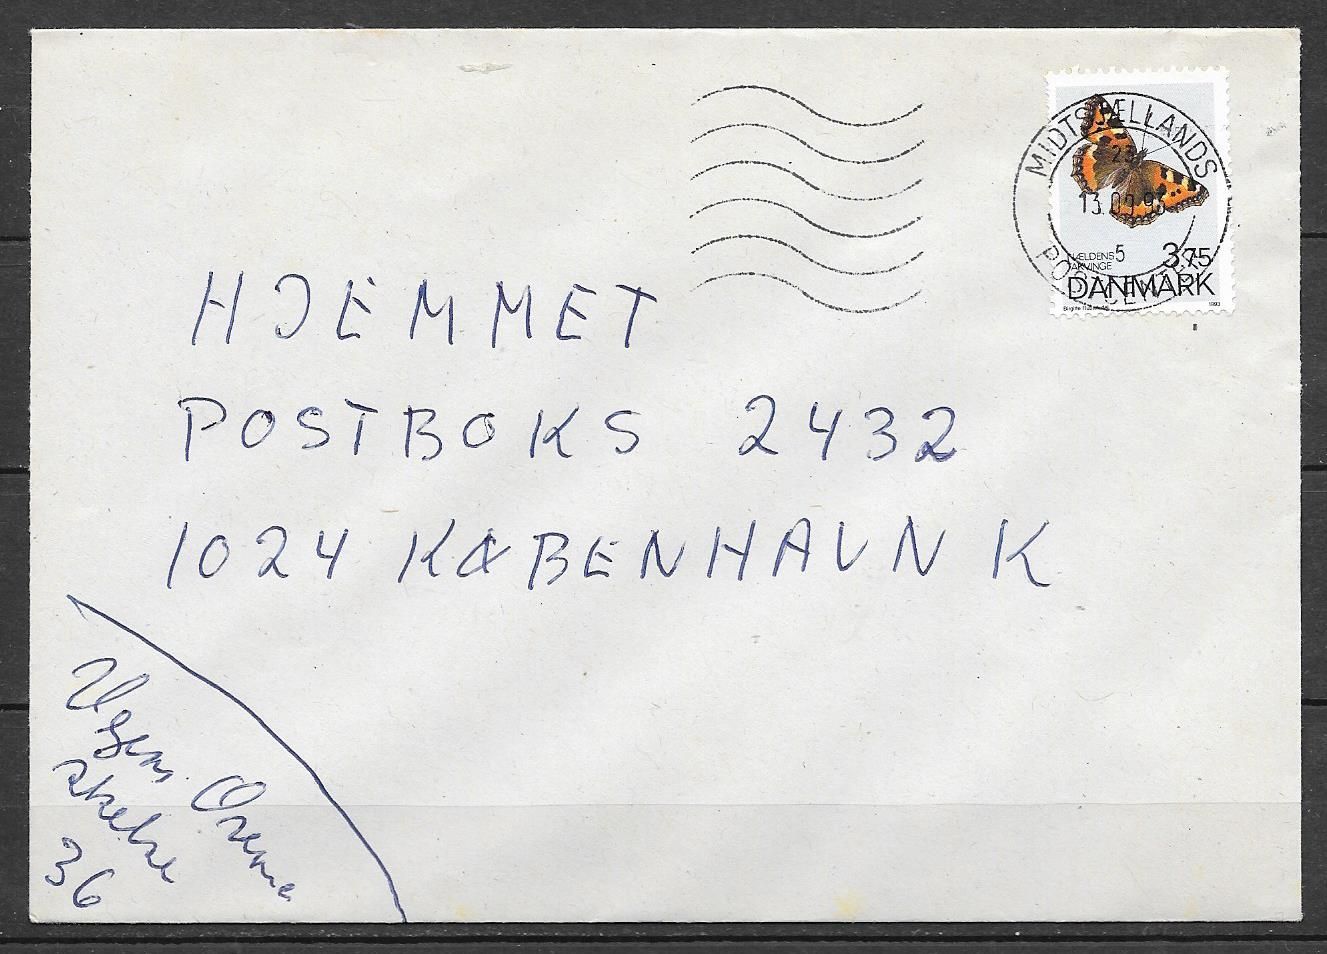 MIDTSJÆLLANDS
23
13.09.93
POSTCENTER
NÆLDENS
TAKVINGE
5
3.75
DANMARK
1993
HJEMMET
POSTBOKS 2432
1024 KØBENHAVN K
Ugens
36